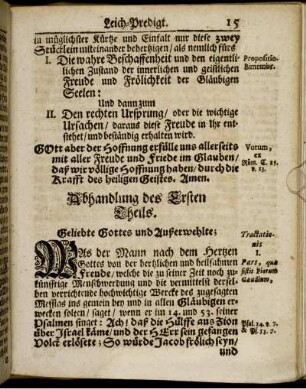 Leich-Predigt. 15
in müglichster Kürtze und Einfalt nur diese zwey
Stücklein miteinander behertzigen/ als nemlich fürs
I. Die wahre Beschaffenheit und den eigent-
lichen Zustand der innerlichen und geistlichen
Freude und Frölichkeit der Gläubigen
Seelen:
Propositio
Bimembr.
Und dann zum
II. Den rechten Ursprung/ oder die wichtige
Ursachen/ daraus diese Freude in Ihr ent-
stehet/ und beständig erhalten wird.
GOtt aber der Hoffnung erfülle uns allerseits
mit aller Freude und Friede im Glauben/
daß wir völlige Hoffnung haben/ durch die
Krafft des heiligen Geistes. Amen.
Votum,
ex
Röm. C. 15.
v. 13.
Abhandlung des Ersten
Theils.
Geliebte Gottes und Außerwehlte:
Tractatio-
nis
I.
Pars, quæ
sistit Piorum
Gaudium,
WAs der Mann nach dem Hertzen
Gottes von der hertzlichen und heilsahmen
Freude/ welche die zu seiner Zeit noch zu-
künftige Menschwerdung und die vermittelst der-
selben verrichtende hochwichtige Wercke des zugesagten
Messias ins gemein bey und in allen Gläubigen er-
wecken solten/ saget/ wenn er im 14. und 53. seiner
Psalmen singet: Ach! daß die Hülffe aus Zion
über Israel käme/ und der HErr sein gefangen
Volck erlösete; So würde Jacob frölich seyn/
Psal. 14. v. 7.
& Pf. 53. v. 7.
und